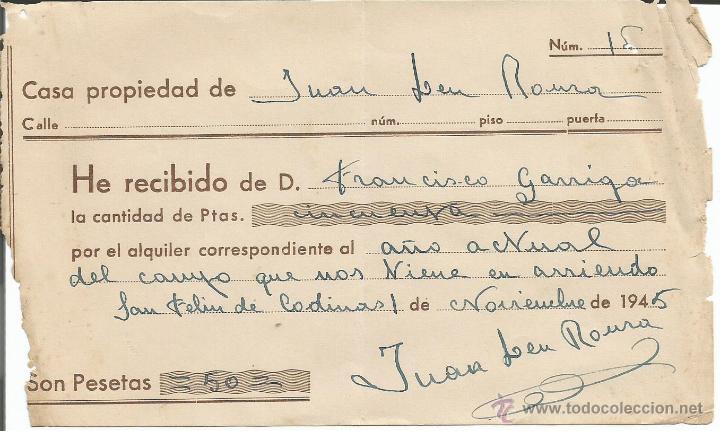 Núm. 15
Casa propiedad de Juan Leu Roura
Calle núm. piso puerta
He recibido de D. Francisco Garriga
la cantidad de Ptas. cincuenta
por el alquiler correspondiente al año actual
del campo que nos tiene en arriendo
San Feliu de Codinas 1 de Noviembre de 1945
Juan Leu Roura
Son Pesetas = 50 =
www.todocoleccion.net